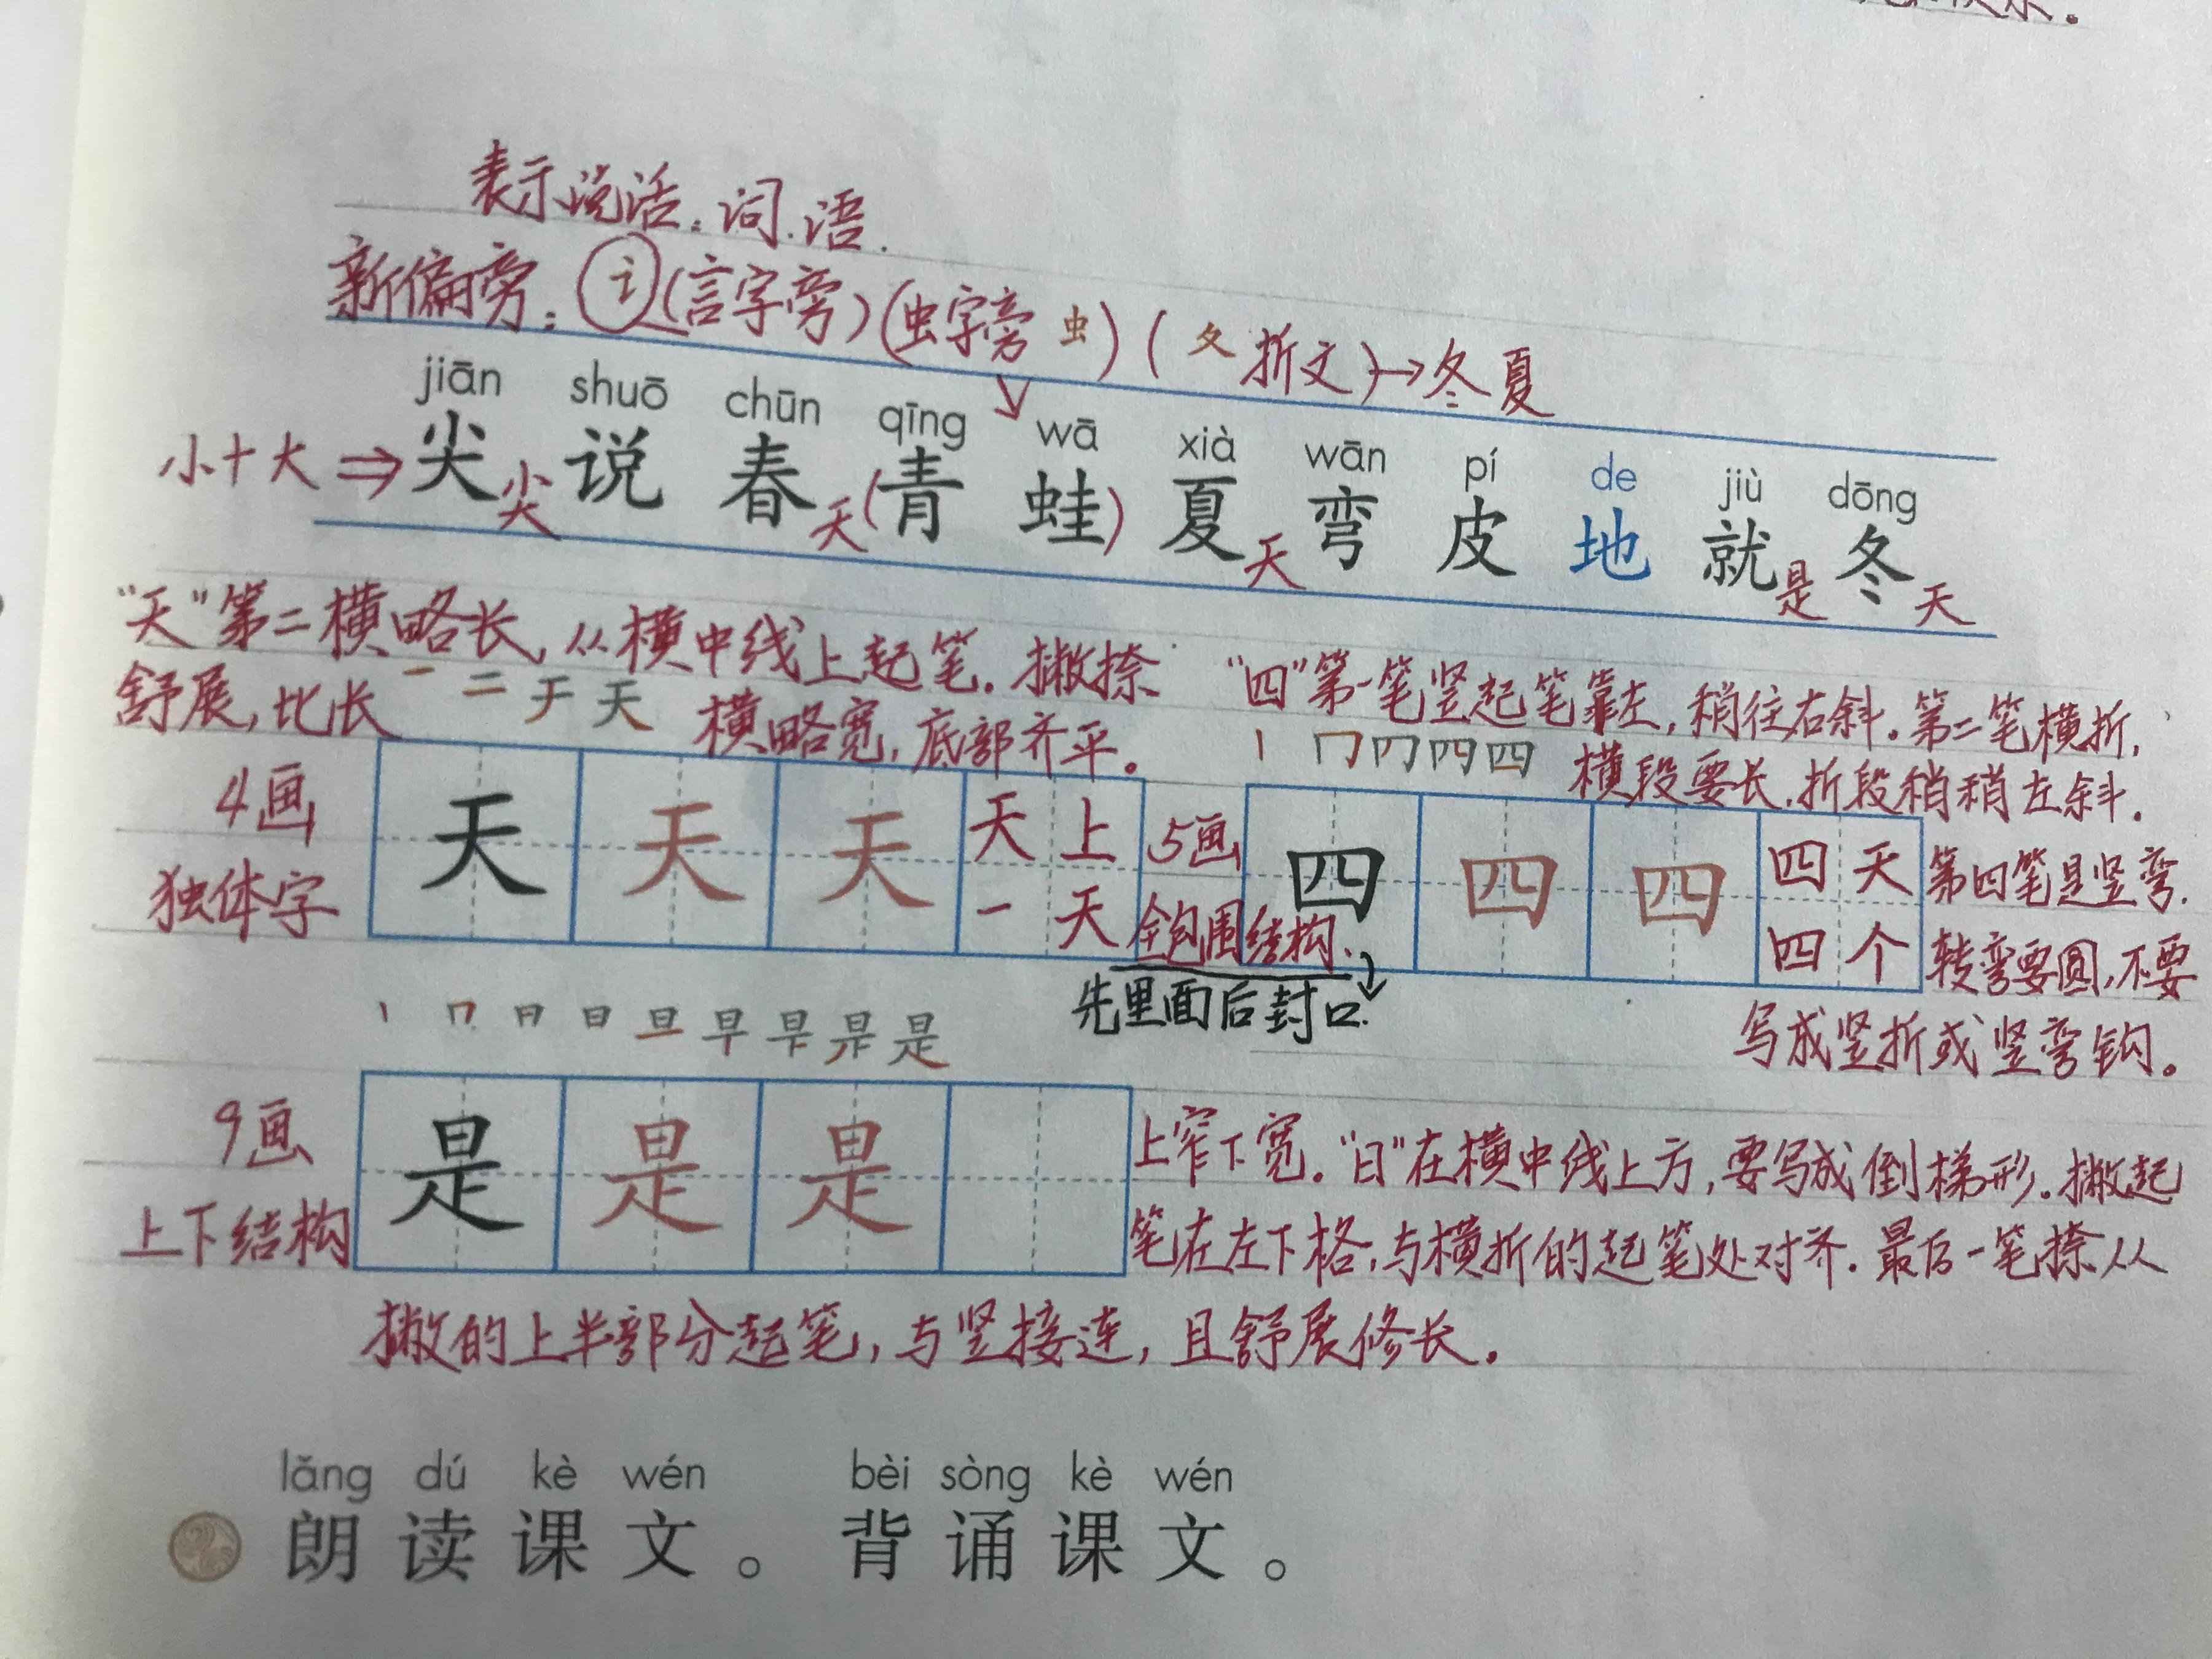 表示说话:词.语.
新偏旁:讠(言字旁)(虫字旁 虫)(夂 折文)→冬夏
jiān shuō chūn qīng wā xià wān pí de jiù dōng
小十大⇒尖尖 说 春天(青 蛙)夏天 弯 皮 地 就是 冬天
"天"第二横略长,从横中线上起笔.撇捺
舒展,比长横略宽,底部齐平。
一 二 于 天
"四"第一笔竖起笔靠左,稍往右斜.第二笔横折,
横段要长,折段稍稍左斜.
丨 冂 四 四
4画
独体字
天 天 天 天上
一天
5画
全包围结构.
先里面后封口.
四 四 四 四天
四个
第四笔是竖弯.
转弯要圆,不要
写成竖折或竖弯钩。
丨 日 旦 早 是
9画
上下结构
是 是 是
上窄下宽."日"在横中线上方,要写成倒梯形.撇起
笔在左下格,与横折的起笔处对齐.最后一笔捺从
撇的上半部分起笔,与竖接连,且舒展修长。
lǎng dú kè wén bèi sòng kè wén
朗读课文。背诵课文。